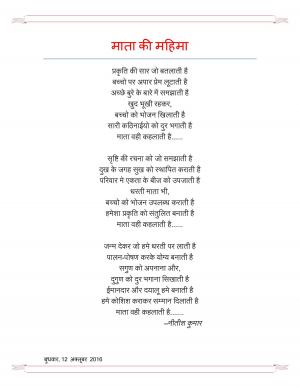 माता की महिमा
प्रकृति की सार जो बतलाती है
बच्चो पर अपार प्रेम लूटाती है
अच्छे बुरे के बारे में समझाती है
खुद भूखी रहकर,
बच्चो को भोजन खिलाती है
सारी कठिनाईयो को दुर भगाती है
माता वही कहलाती है......
सृष्टि की रचना को जो समझाती है
दुख के जगह सुख को स्थापित कराती है
परिवार मे एकता के बीज को उपजाती है
धरती माता भी,
बच्चो को भोजन उपलब्ध कराती है
हमेशा प्रकृति को संतुलित बनाती है
माता वही कहलाती है.......
जन्म देकर जो हमे धरती पर लाती है
पालन-पोषण करके योग्य बनाती है
सगुण को अपनाना और,
दुगुण को दुर भगाना सिखाती है
ईमानदार और दयालू हमे बनाती है
हमे कोशिश कराकर सम्मान दिलाती है
माता वही कहलाती है.......
--नीतीश कुमार
बुधवार, 12 अक्तूबर 2016